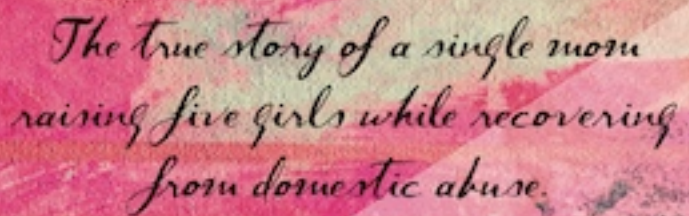 The true story of a single mom
raising five girls while recovering
from domestic abuse.